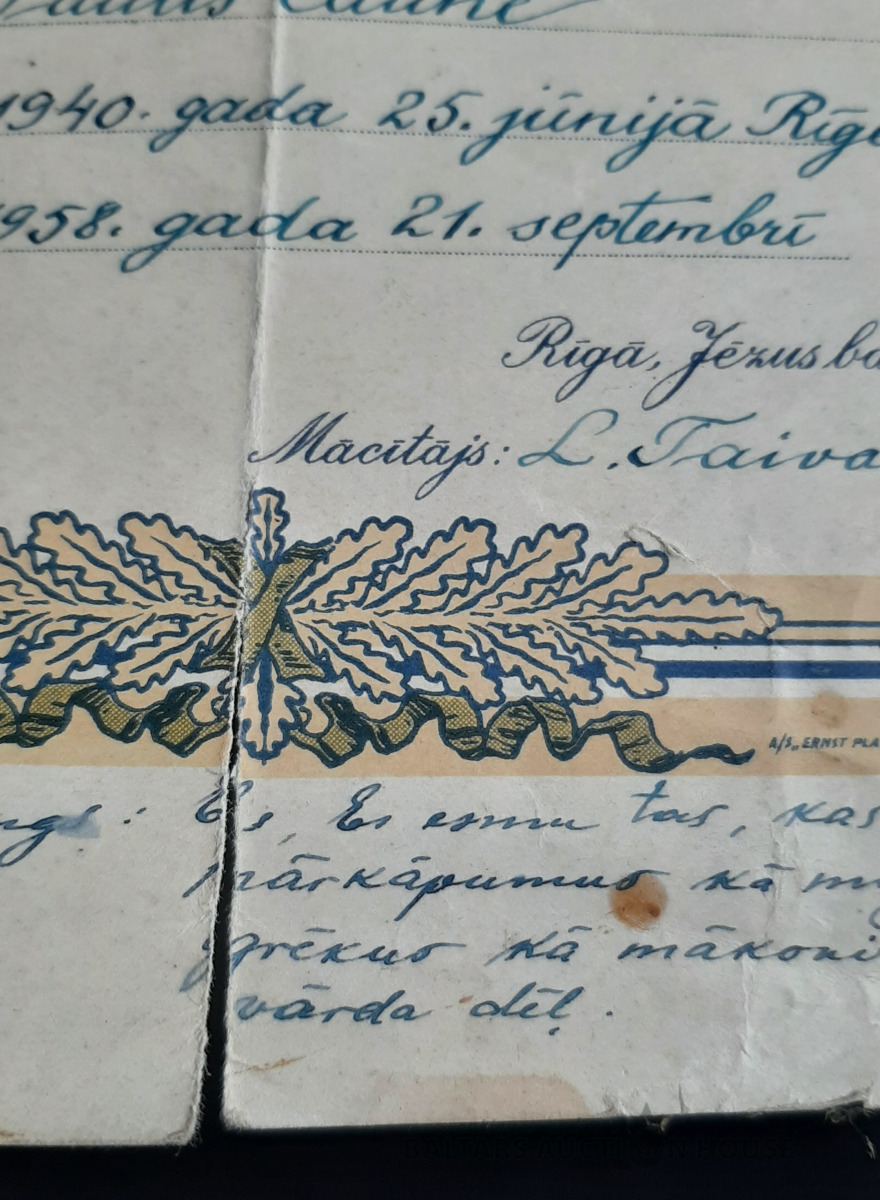 Caune
1940. gada 25. jūnijā Rīg
1958. gada 21. septembrī
Rīgā, Jēzus ba
Mācītājs: L. Taiva
A/S. „ERNST PLA
ngs: Es, Es esmu tas, kas
pārkāpumus kā m
grēkus kā mākoni
vārda dēļ.
BALTARS AUCTION HOUSE